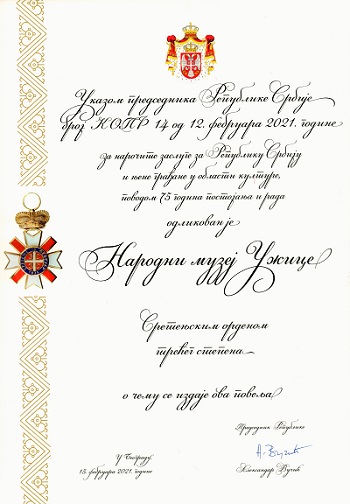 Указом председника Републике Србије
број КОПР 14 од 12. фебруара 2021. године
за нарочите заслуге за Републику Србију
и њене грађане у области културе,
поводом 75 година постојања и рада
одликован је
Народни музеј Ужице
Сретењским орденом
трећег степена
о чему се издаје ова повеља
Председник Републике
У Београду
15. фебруара 2021. године
Александар Вучић